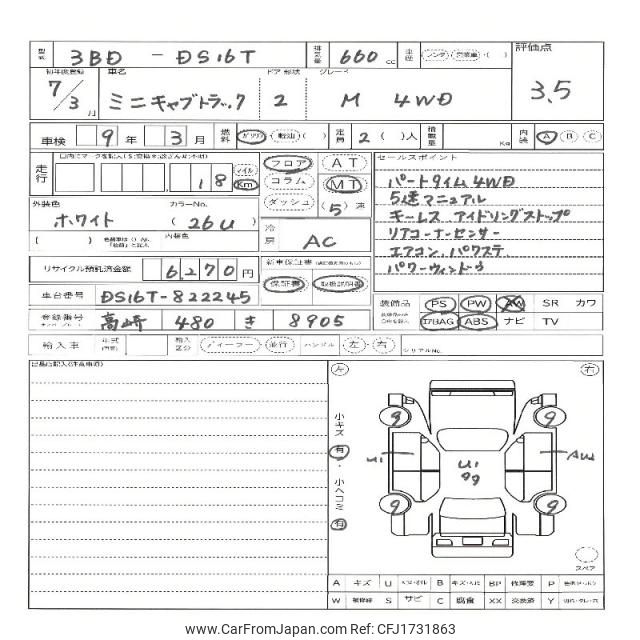 型式 3BD - DS16T 排気量 660 cc 車歴 レンタ 営業車 ( ) 評価点
初年度登録 車名 ドア 形状 グレード
7/3月 ミニキャブトラック 2 M 4WD 3.5
車検 9年 3月 燃料 ガソリン 軽油 ( ) 定員 2 ( )人 積載量 Kg 内装 A B C
走行 18 マイル Km フロア AT セールスポイント
コラム MT パートタイム4WD
ダッシュ (5)速 5速マニュアル
外装色 カラーNo. キーレス アイドリングストップ
ホワイト (26U) 冷房 AC リアコーナーセンサー
( ) 内装色 エアコン、パワステ
パワーウィンドウ
リサイクル預託済金額 6,270円 新車保証書
保証書 取扱説明書
車台番号 DS16T-822245 装備品 PS PW AW SR カワ
登録番号 高崎 480 き 8905 エアBAG ABS ナビ TV
輸入車 年式 輸入区分 ディーラー・並行 ハンドル 左・右 シリアルNo.
左 右
小キズ 有・小ヘコミ 有
9 9
U1 U1 99 AU2
9 9
スペア
A キズ U B BP 修理要 P
W S サビ C 腐食 XX 交換済 Y
www.CarFromJapan.com Reference No. CFJ1731863